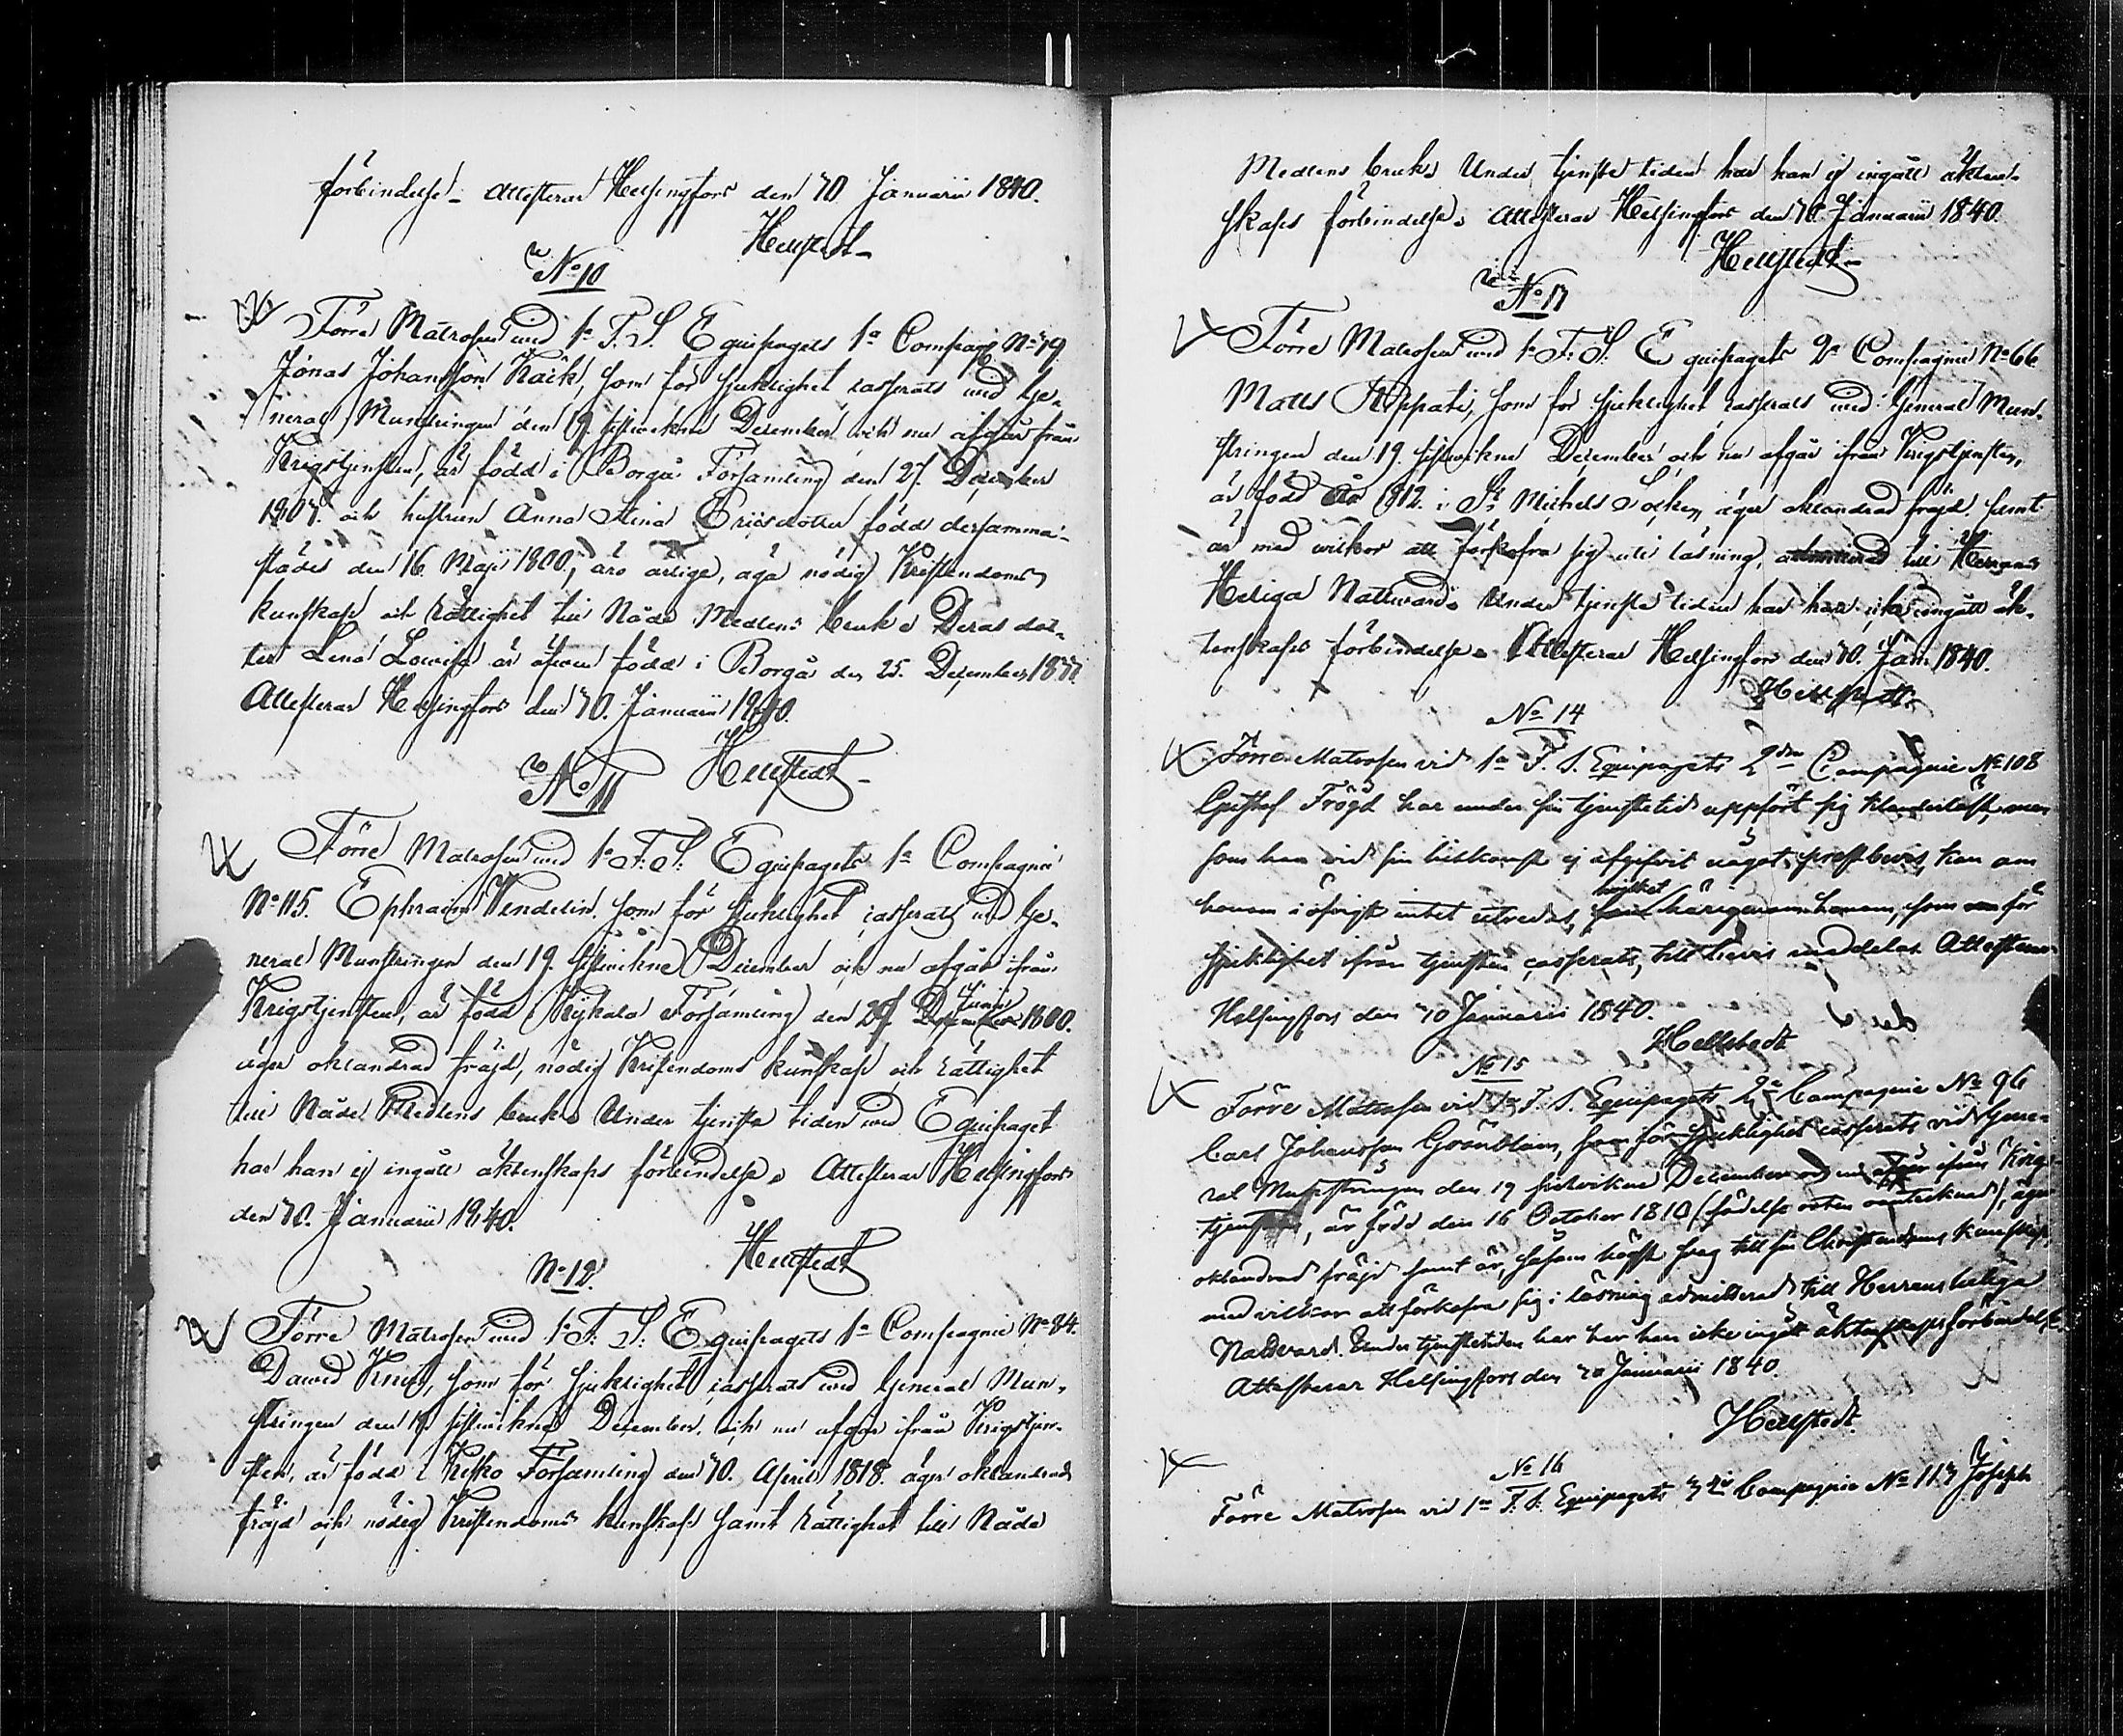 förbindelse. Attesterar Helsingfors den 30 Januarii 1840.
Hellstedt
No 10
Förre Matrosen wid 1a F. S. Equipagets 1a Compagn No 19
Jonas Johansson Käck, som för sjuklighet casserats wid Ge-
neral Munstringen den 19 sistwekne December och nu afgår från
Krigstjensten, är född i Borgå Församling den 27. December
1807. och hustrun Anna Stina Ericsdotter född dersamma-
städes den 16. Maji 1800; äro ärlige, äga nödig Kristendoms
kunskap och rättighet till Nåde Medlens bruk. Deras dot-
ter Lena Lowisa är äfwen född i Borgå den 25. December
Attesterar Helsingfors den 30. Januarii 1840.
Hellstedt
No 11
Förre Matrosen wid 1a F. S. Equipagets 1a Compagnie
No 115. Ephraim Wendelin, som för sjuklighet casserats wid Ge-
neral Munstringen den 19. sistwekne December och nu afgår ifrån
Krigstjensten, är född i Kykala Församling den Junii 1800.
äger oklandrad fräjd, nödig Kristendoms kunskap och rättighet
till Nåde Medlens bruk. Under tjenste tiden wid Equipaget
har han ej ingått äktenskaps förbindelse. Attesterar Helsingfors
den 30. Januarii 1840.
Hellstedt
No 12.
Förre Matrosen wid 1a F. S. Equipagets 1a Compagnie No 84.
Dawid som för sjuklighet casserats wid General Mun-
stringen den 19. sistwekne December, och nu afgår ifrån Krigstjen-
sten, är född i Kisko Församling den 30. April 1818. äger oklandrad
fräjd och nödig Kristendoms kunskap samt rättighet till Nåde
Medlens bruk. Under tjenste tiden har han ej ingått äkten-
skaps förbindelse. Attesterar Helsingfors den 30. Januarii 1840.
Hellstedt
No 13
Förre Matrosen wid 1a F. S. Equipagets 2a Compagnie No 66
Matts som för sjuklighet casserats wid General Mun-
stringen den 19. sistwekne December och nu afgår ifrån Krigstjensten,
är född År 1812. i St Michels Socken, äger oklandrad fräjd, samt
är med wilkor att förkofra sig uti läsning, admitterad till Herrans
Heliga Nattward. Under tjenste tiden har han icke ingått äk-
tenskaps förbindelse. Attesterar Helsingfors den 30. Jan. 1840.
Hellstedt
No 14
Förre Matrosen vid 1a F. S. Equipagets 2dra Compagnie No 108
Gustaf Frögd har under sin tjenstetid uppfört sig klanderlöst, men
som han vid sin hitkomst ej afgifvit något prestbevis, kan om
honom i öfrigt intet utredas, hvilket härigenom honom, som för
sjuklighet ifrån tjensten casserats, till bevis meddelas. Attesterar
Helsingfors den 30 Januarii 1840.
Hellstedt
No 15
Förre Matrosen vid 1a F. S. Equipagets 2a Compagnie No 96
Carl Johansson Grönblom, som för sjuklighet casserats vid Gene-
ral Munstringen den 19 sistvikne December och nu afgår ifrån Krigs-
tjensten, är född den 16 October 1810 (födelse orten oantecknad), äger
oklandrad fräjd samt är, såsom högst svag till sin Christendoms kunskap,
med vilkor att förkofra sig i läsning admitterad till Herrans heliga
Nattvard. Under tjenstetiden har har han icke ingått äktenskapsförbindelse.
Attesterar Helsingfors den 30 Januarii 1840.
Hellstedt.
No 16
Förre Matrosen vid 1a F. S. Equipagets Compagnie No 113 Joseph